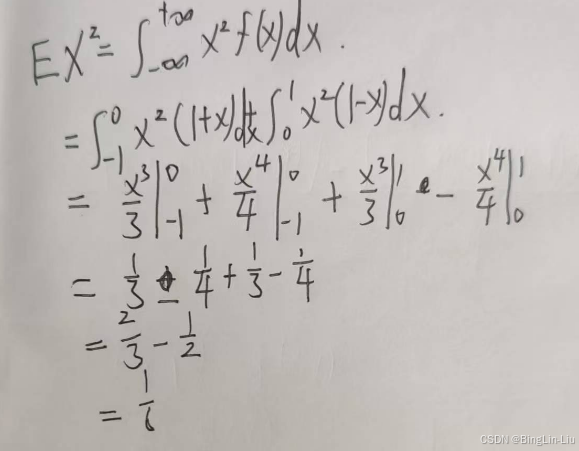 EX² = ∫_{-∞}^{+∞} x² f(x)dx.
= ∫_{-1}^{0} x²(1+x)dx + ∫_{0}^{1} x²(1-x)dx.
= x³/3 |_{-1}^{0} + x⁴/4 |_{-1}^{0} + x³/3 |_{0}^{1} - x⁴/4 |_{0}^{1}
= 1/3 - 1/4 + 1/3 - 1/4
= 2/3 - 1/2
= 1/6
CSDN @BingLin-Liu